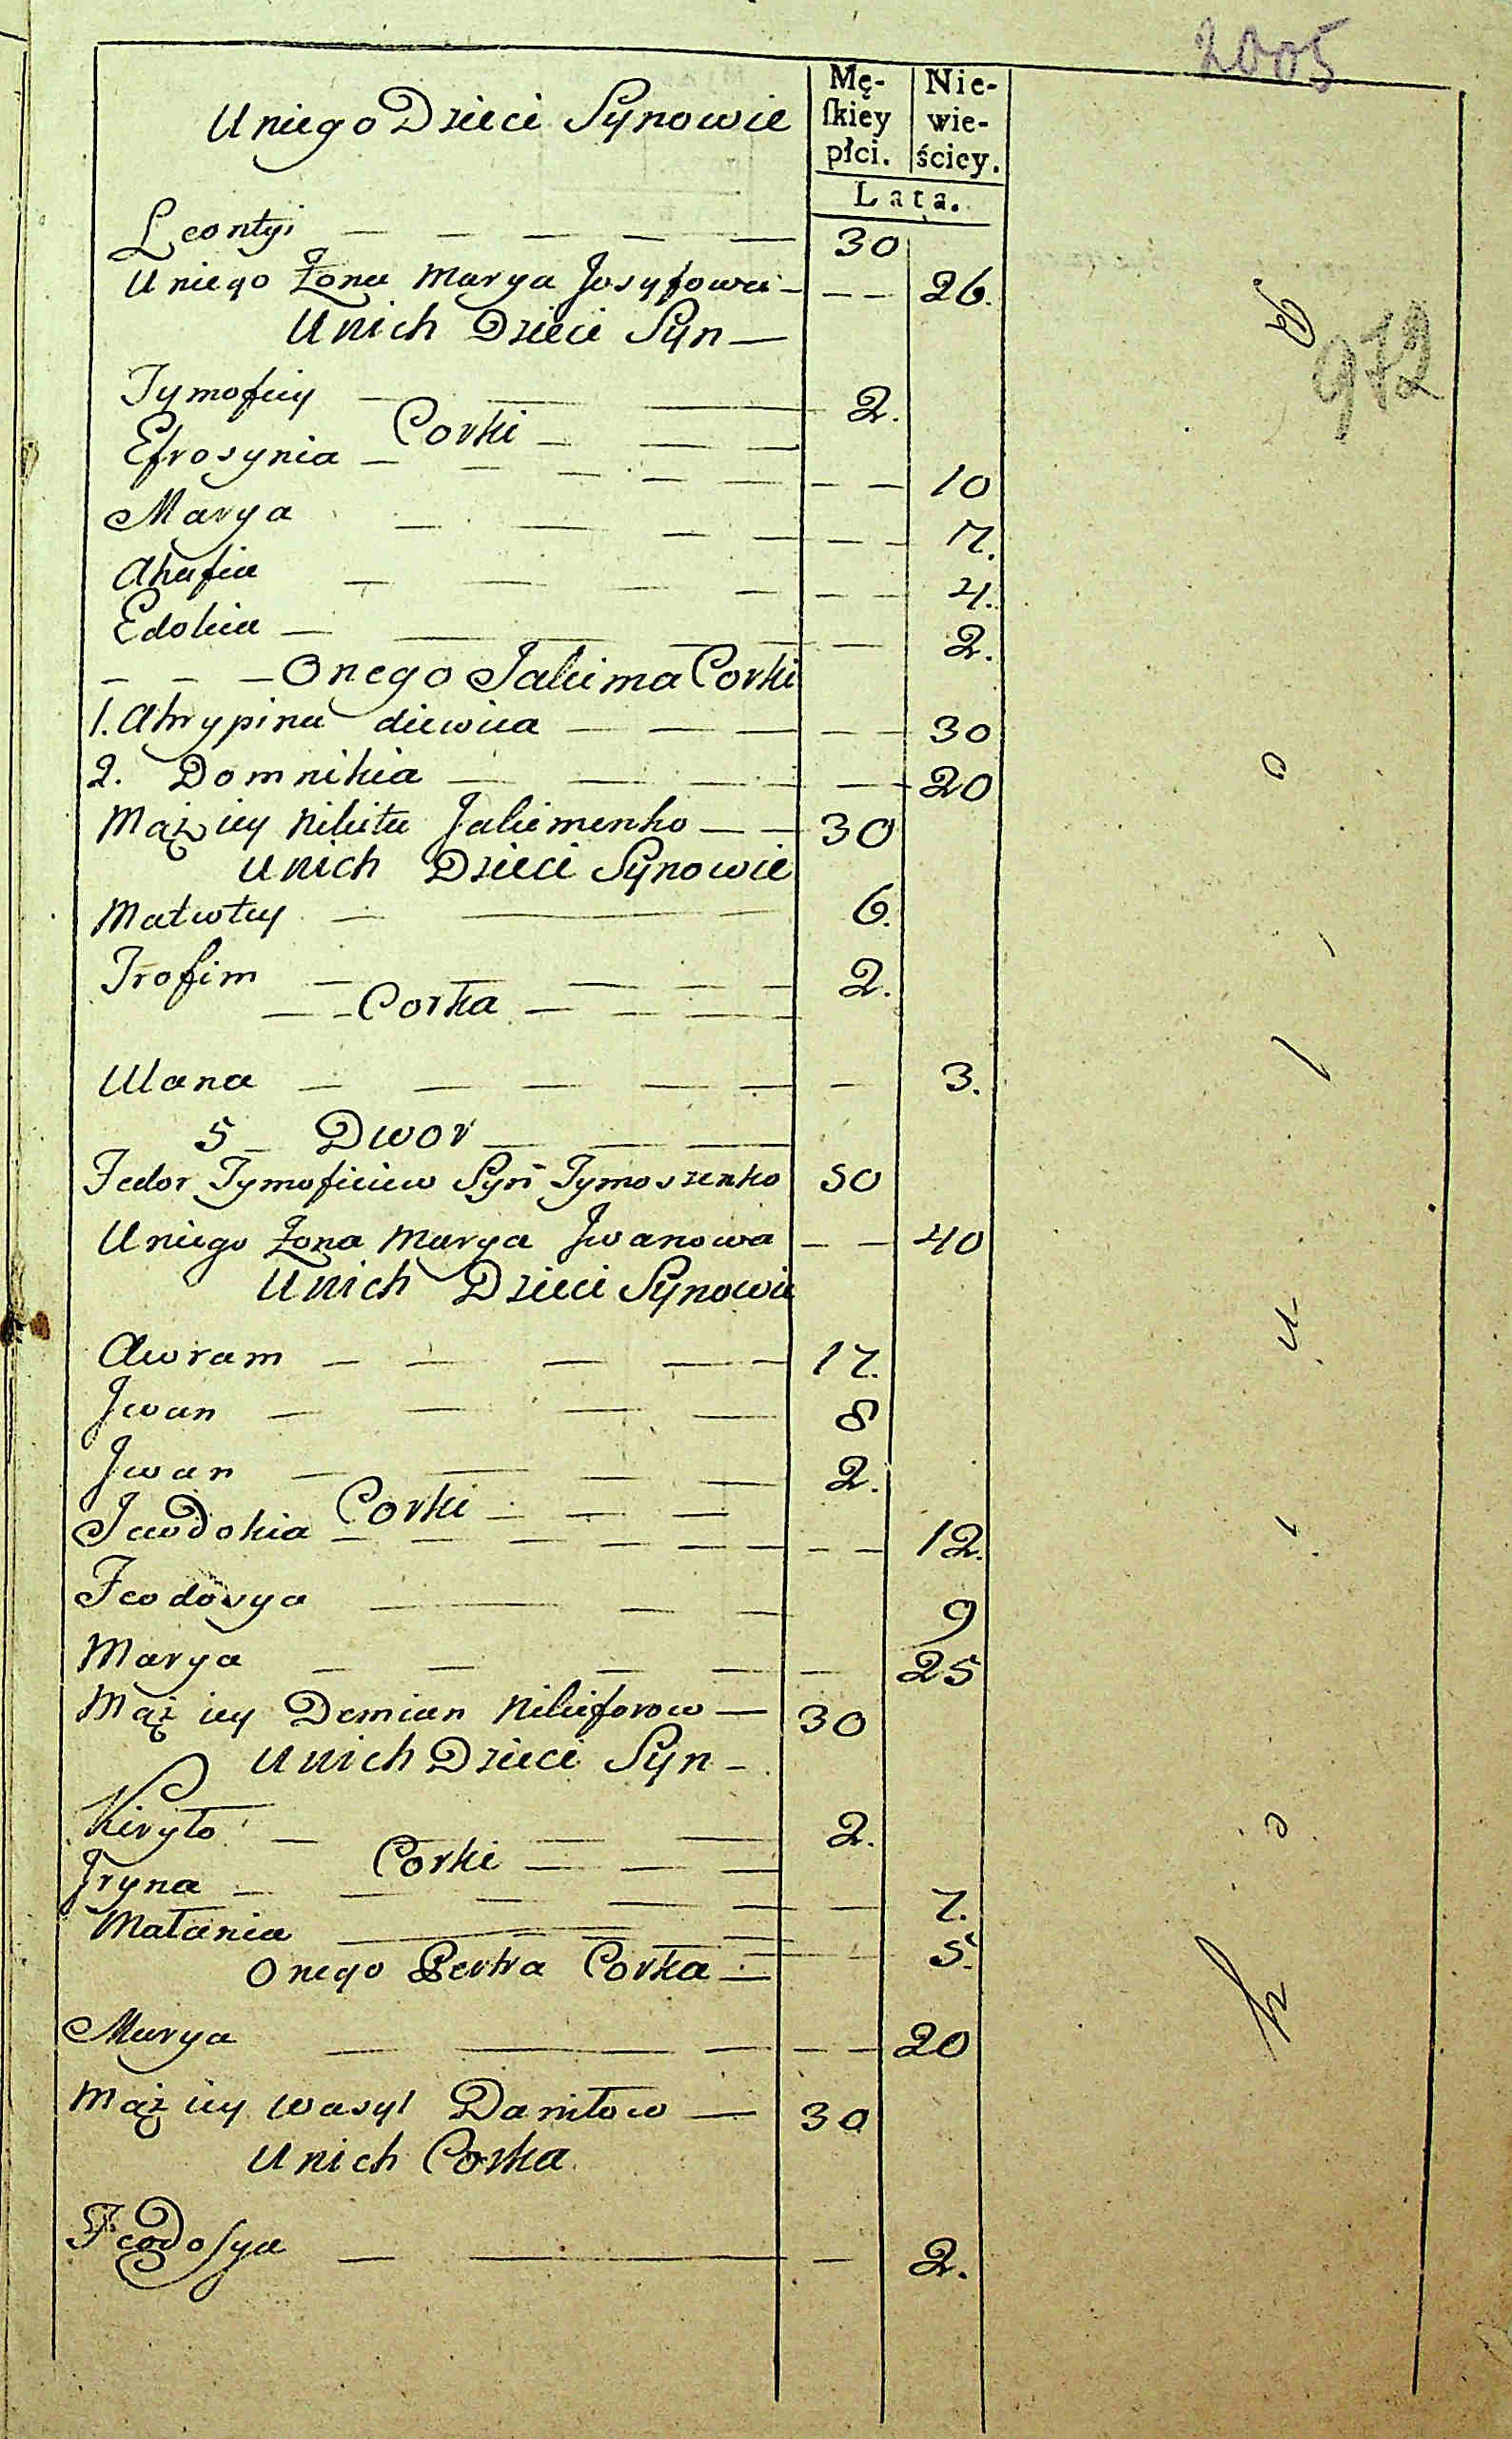 2005
Uniego Dzieci Synowie
Mę-
skiey
płci.
Nie-
wie-
ściey.
Lata.
Leontyi — — — — — 30
Uniego Żona Marya Josyfowa — — — 26.
Unich Dzieci Syn —
972
Tymofiey — — — 2.
Corki — — —
Efrosynia — — — — — — — 10
Marya — — — — — — 7.
Ahafia — — — — — — 4.
Edokia — — — — — 2.
— — — Onego Jakima Corki
1. Ahrypina diewica — — — — — 30
2. Domnikia — — — — — 20
Mąż iey Nikita Jakimenko — — 30
Unich Dzieci Synowie
Matwiey — — — 6.
Trofim — — — — — 2.
— — Corka — — — —
Ulana — — — — — — 3.
5 — Dwor — — —
Fedor Tymofieiew Syn Tymoszenko 50
Uniego Żona Marya Jwanowa — — 40
Unich Dzieci Synowie
Awram — — — — — 17.
Jwan — — — — 8
Jwan — — — — 2.
Corki — — —
Jawdokia — — — — — — — — 12.
Feodosya — — — 9
Marya — — — — — 25
Mąż iey Demian Nikiforow — 30
Unich Dzieci Syn —
Kiryło — — — — 2.
Corki — — —
Jryna — — — — — — 7.
Małania — — — — 5.
Onego Piotra Corka —
Marya — — — — — 20
Mąż iey Wasyl Daniłow — 30
Unich Corka
Feodosya — — — 2.